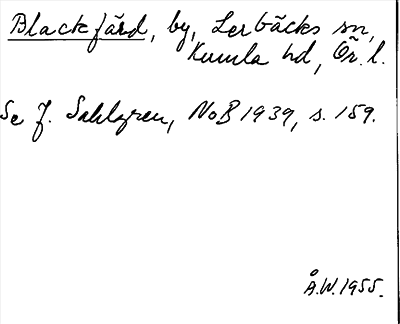 Blackfärd, by, Lerbäcks sn,
Kumla hd, Ör. l.
Se J. Sahlgren, NoB 1939, s. 159.
Å.W. 1955.